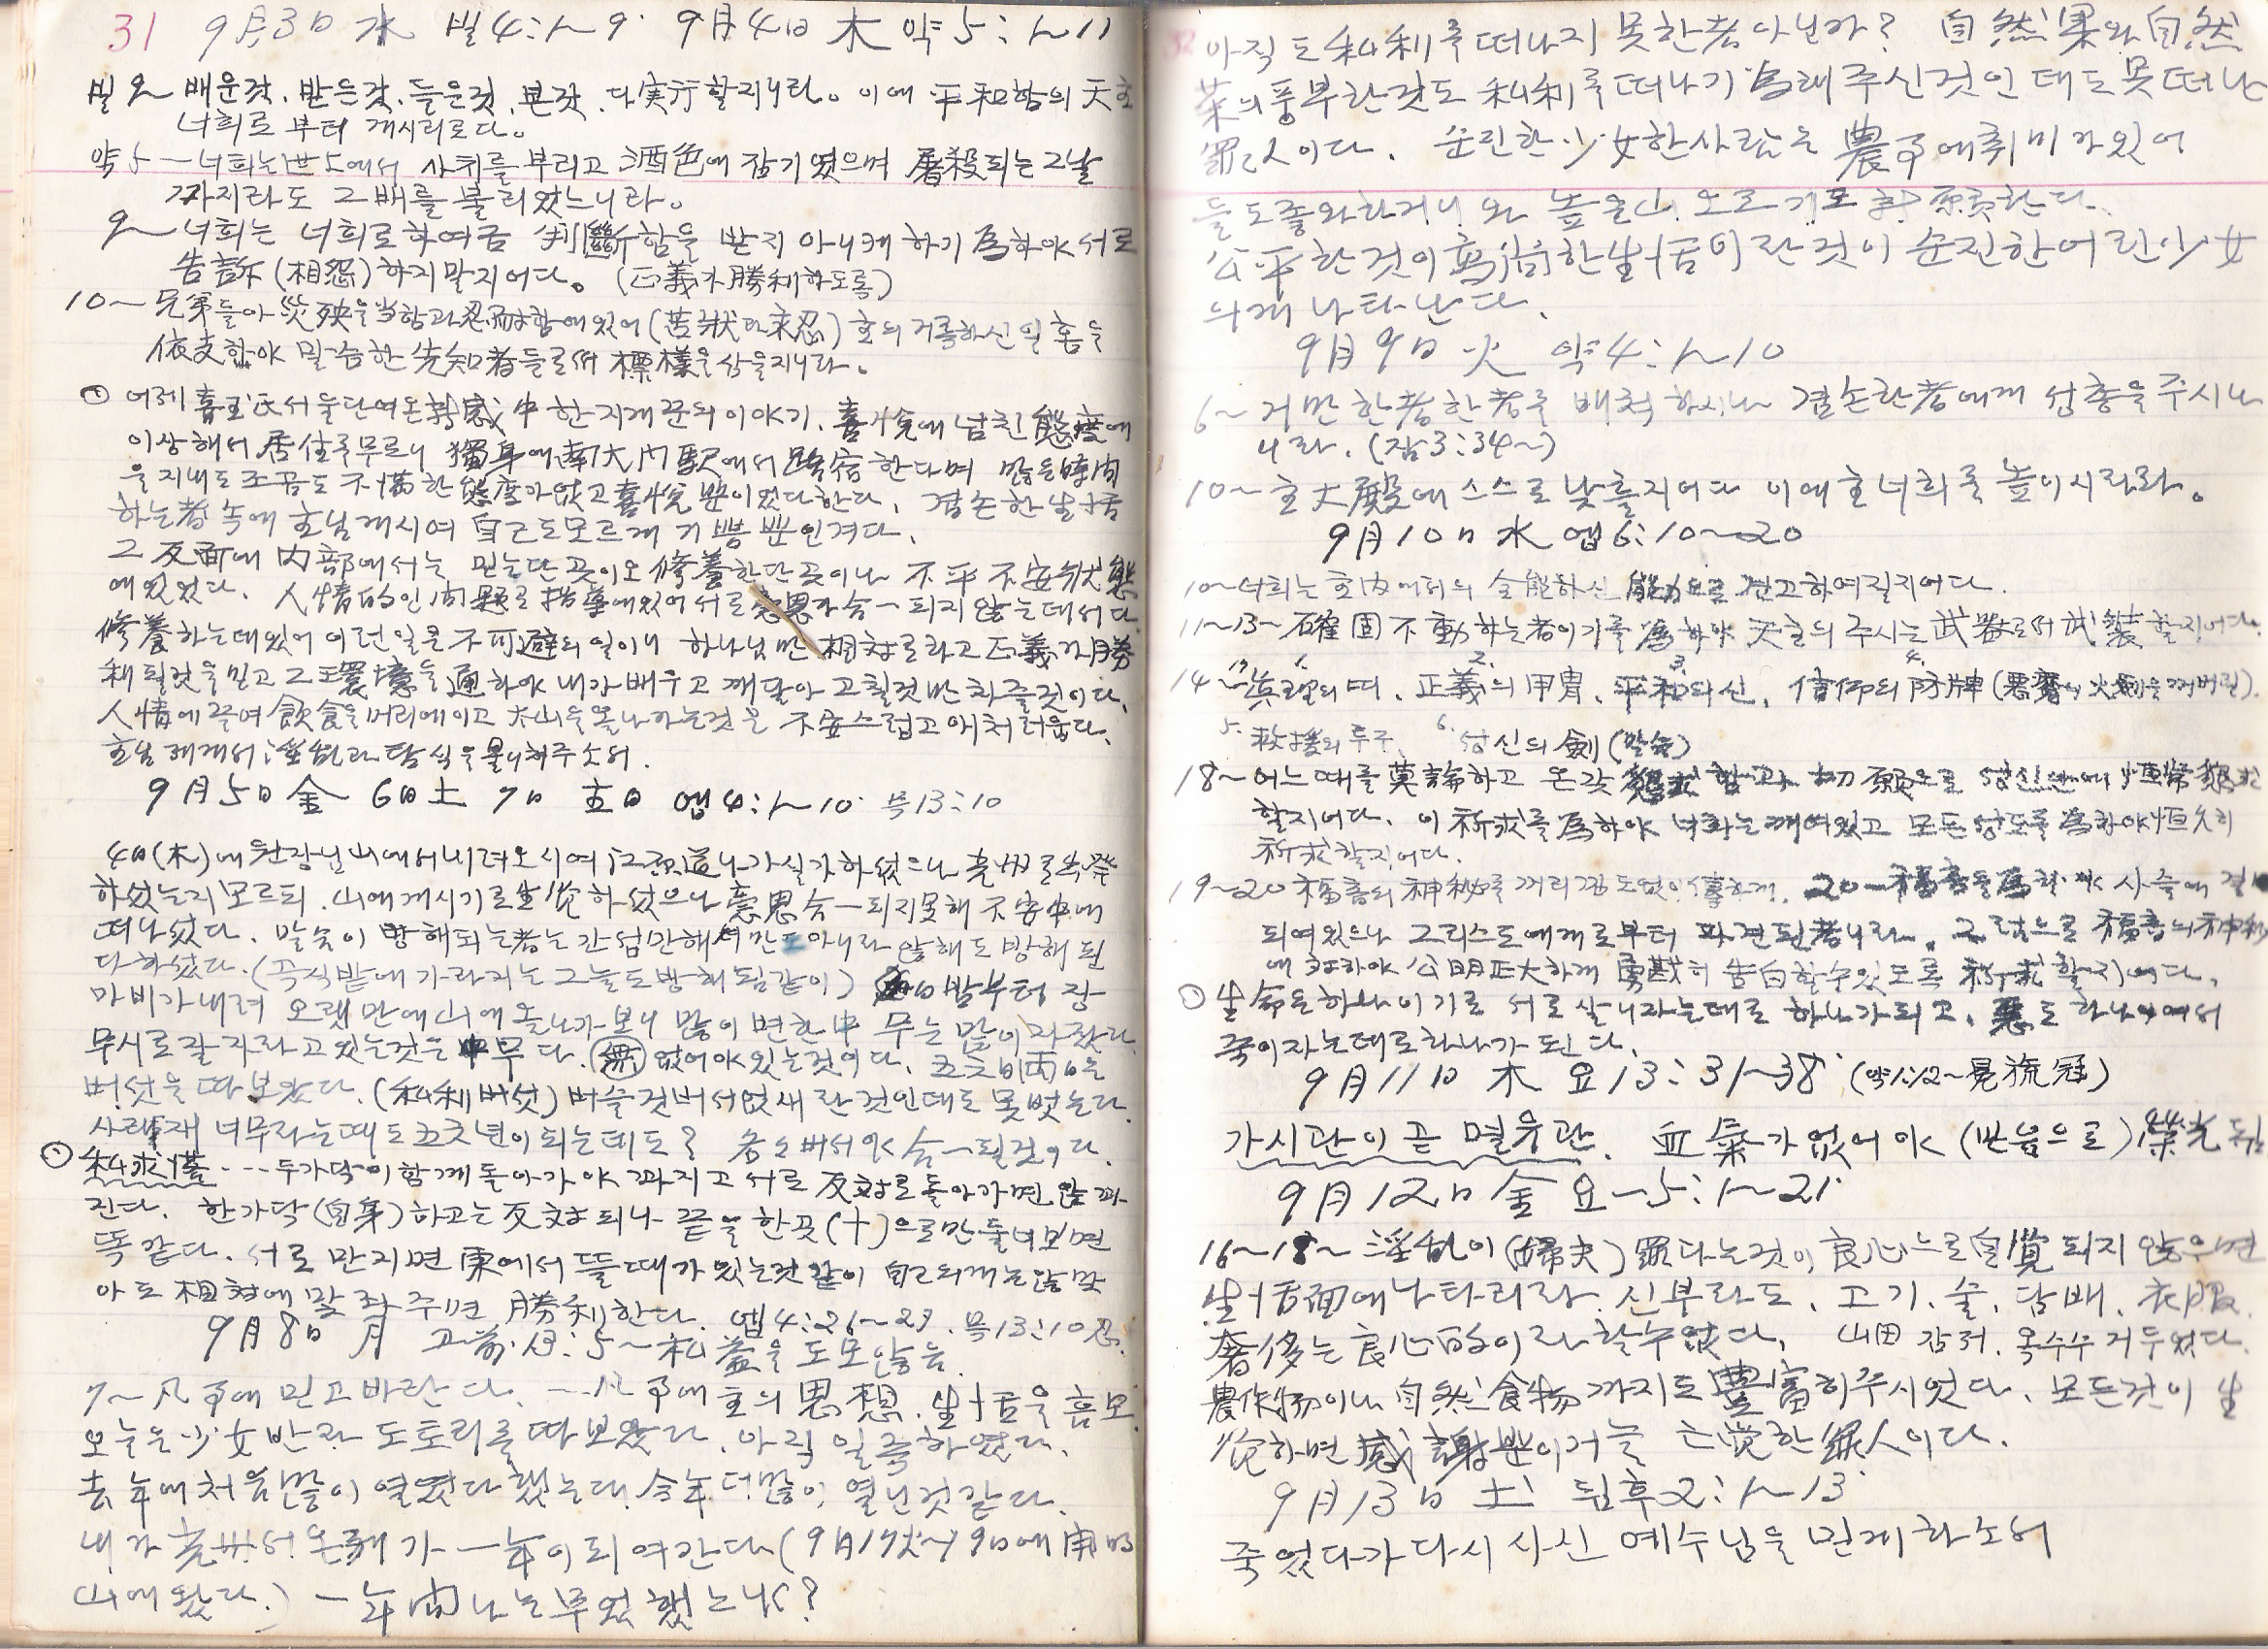 31 9月3日 水 빌4:1~9 9月4日 木 약5:1~11
빌 9~ 배운것, 받은것, 들은것, 본것, 다 実行할지니라. 이에 平和함의 天主
너희로 부터 계시리로다.
약5~ 너희는 世上에서 사치를 부리고 酒色에 잠기였으며 屠殺되는 그날
까지라도 그 배를 불리었느니라.
9~ 너희는 너희로 하여금 判斷함을 받지 아니케 하기 爲하야 서로
告訴(相怨)하지 말지어다. (正義가 勝利하도록)
10~ 兄弟들아 災殃을 当함과 忍耐함에 있어 主의 거룩하신 일홈을
依支하야 말슴한 先知者들로써 標樣을 삼을지니라.
어제 喜 氏 서울 단여온 感 中 한 지게꾼의 이야기. 喜悅에 넘친 態度에
이상해서 居住를 무르니 獨身에 南大門 駅에서 露宿한다며 많은 時間
을 지내도 조곰도 不満한 態度가 없고 喜悅뿐이였다 한다. 겸손한 生活
하는 者 속에 主님 계시여 自己도 모르게 기쁠 뿐인거다.
그 反面에 内部에서는 믿는단 곳이오 修養한단 곳이나 不平 不安 狀態
에 있었다. 人情的인 問題로 있어 서로 意思가 合一되지 않는데서다
修養하는데 있어 이런 일은 不可避의 일이니 하나님만 相対로 하고 正義가 勝
利될것을 믿고 그 環境을 通하야 내가 배우고 깨달아 고칠것만 찾을것이다.
人情에 끌여 飮食을 머리에 이고 太山을 올나가는것은 不安스럽고 애처러웁다.
主님께게서 淫乱과 탐식을 물니쳐주소서.
9月5日 金 6日 土 7日 主日 엡4:1~10 묵13:10
4日(木)에 원장님 山에서 내려오시여 江原道나 가실가 하셨으나 光州로
하셨는지 모르되 山에 계시기로 生覚하셨으나 意思合一되지 못해 不安中에
떠나셨다. 말슴이 방해되는 者는 간섭만해서만도 아니라 않해도 방해 된
다 하셨다. (곡식밭에 가라지는 그늘도 방해됨 같이) 日 밤부터 장
마비가 내려 오랫만에 山에 올나가 보니 많이 변한 中 무는 많이 자랐다.
무시로 잘 자라고 있는것은 무다. (無) 없어야 있는것이다. 五六日
버섯을 따 보았다. (私利버섯) 버슬것 버서없새란것인데도 못벗는다
너무하는 때도 五六년이 되는데도? 各各 버서야 合一될것이다.
私求 慾 --- 두가닥이 함께 돌아가야 꽈지고 서로 反対로 돌아가면 않꽈
진다. 한가닥(自身)하고는 反対되나 끝을 한곳(十)으로만 둘너보면
똑같다. 서로 만지면 東에서 뜰때가 있는것 같이 自己의게는 않맞
아도 相対에 맞춰주면 勝利한다. 엡4:26~29. 묵13:10忍.
9月8日 月 고前 13:5~ 私益을 도모않음
7~ 凡事에 믿고 바란다. --- 凡事에 主의 思想, 生活을 흠모.
오늘은 少女반과 도토리를 따 보았다. 아직 일즉하였다.
去年에 처음 많이 열였다 했는데 今年 더 많이 열닌것 같다.
내가 光州서 온제가 一年이 되여간다(9月17~19日에
山에 왔다.) 一年間 나는 무엇했느냐?
32 아직도 私利를 떠나지 못한 者 아닌가? 自然果와 自然
菜의 풍부한것도 私利를 떠나기 위해 주신것인데도 못떠난
罪人이다. 순진한 少女 한사람은 農事에 취미가 있어
들도 좋와하거니와 높은 山 오르기도 願한다.
公平한것이 高尙한 生活이란것이 순진한 어린 少女
의게 나타난다.
9月9日 火 약4:1~10
6~ 거만한 者를 배척하시나 겸손한 者에게 성총을 주시나
니라. (잠3:34~)
10~ 主大殿에 스스로 낮출지어다 이에 主 너희를 높이시리라.
9月10日 水 엡6:10~20
10~ 너희는 主内에 의 全能하신 能力으로 견고하여질지어다.
11~13~ 確固不動하는 者이기를 爲하야 天主의 주시는 武器로써 武裝할지어다.
14~ 1. 眞理의 띠, 2. 正義의 甲冑, 3. 平和의 신, 4. 信仰의 防牌(悪魔의 火箭을 꺼버릴).
5. 救援의 투구, 6. 성신의 劍(말씀)
18~ 어느때를 莫論하고 온갖 懇求함과 切願으로 성신안에 恒常 懇求
할지어다. 이 祈求를 爲하야 너희는 깨여있고 모든 성도를 爲하야 恒久히
祈求할지어다.
19~20 福音의 神秘를 꺼리낌도 없이 傳하게. 20~ 福音을 爲하야 사슬에
되여있으나 그리스도에게로부터 파견된 者니라. 그럼으로 福音의 神秘
에 対하야 公明正大하게 勇敢히 告白할수있도록 祈求할지어다.
生命은 하나이기로 서로 살니자는데로 하나가 되고, 惡도 하나이여서
죽이자는데로 하나가 된다.
9月11日 木 요13:31~38 (약1:12~ 冕旒冠)
가시관이 끝 면류관. 血氣가 없어야 (반음으로) 榮光됨
9月12日 金 요一5:1~21
16~18~ 淫乱이 (婦夫) 罪다는것이 良心으로 自覚되지 않으면
生活面에 나타리라. 신부라도, 고기, 술, 담배, 衣服
奢侈는 良心的이라 할수 없다. 山田 감저, 옥수수 거두었다.
農作物이나 自然食物까지도 豊富히 주시었다. 모든것이 生
覚하면 感謝뿐이거늘 亡覚한 罪人이다.
9月13日 土 딤후2:1~13
죽었다가 다시 사신 예수님을 믿게 하소서